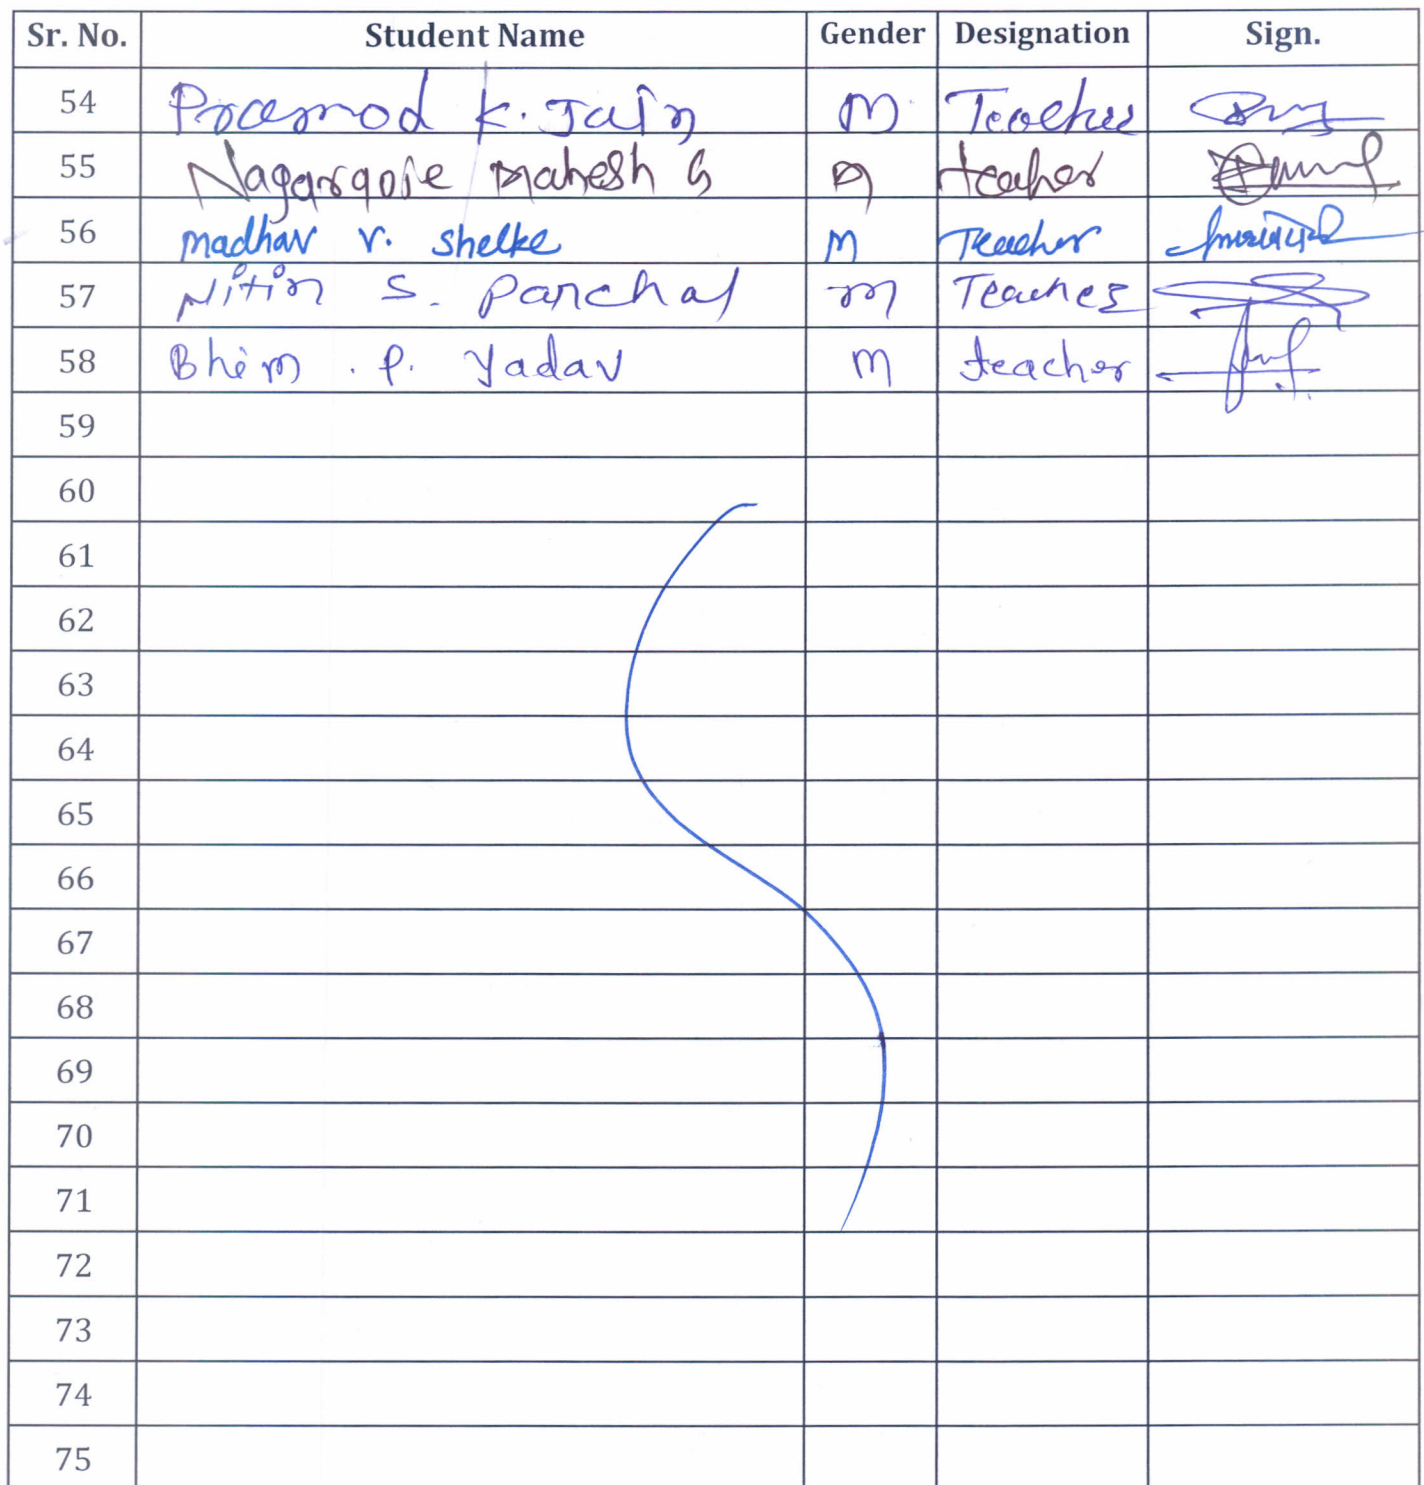 Sr. No. Student Name Gender Designation Sign.
54 Pramod K. Jain M Teacher
55 Nagargoje Mahesh G M teaher
56 madhav v. shelke M Teacher
57 Nitin S. Panchal m Teacher
58 Bhim . P. Yadav M teacher
59
60
61
62
63
64
65
66
67
68
69
70
71
72
73
74
75